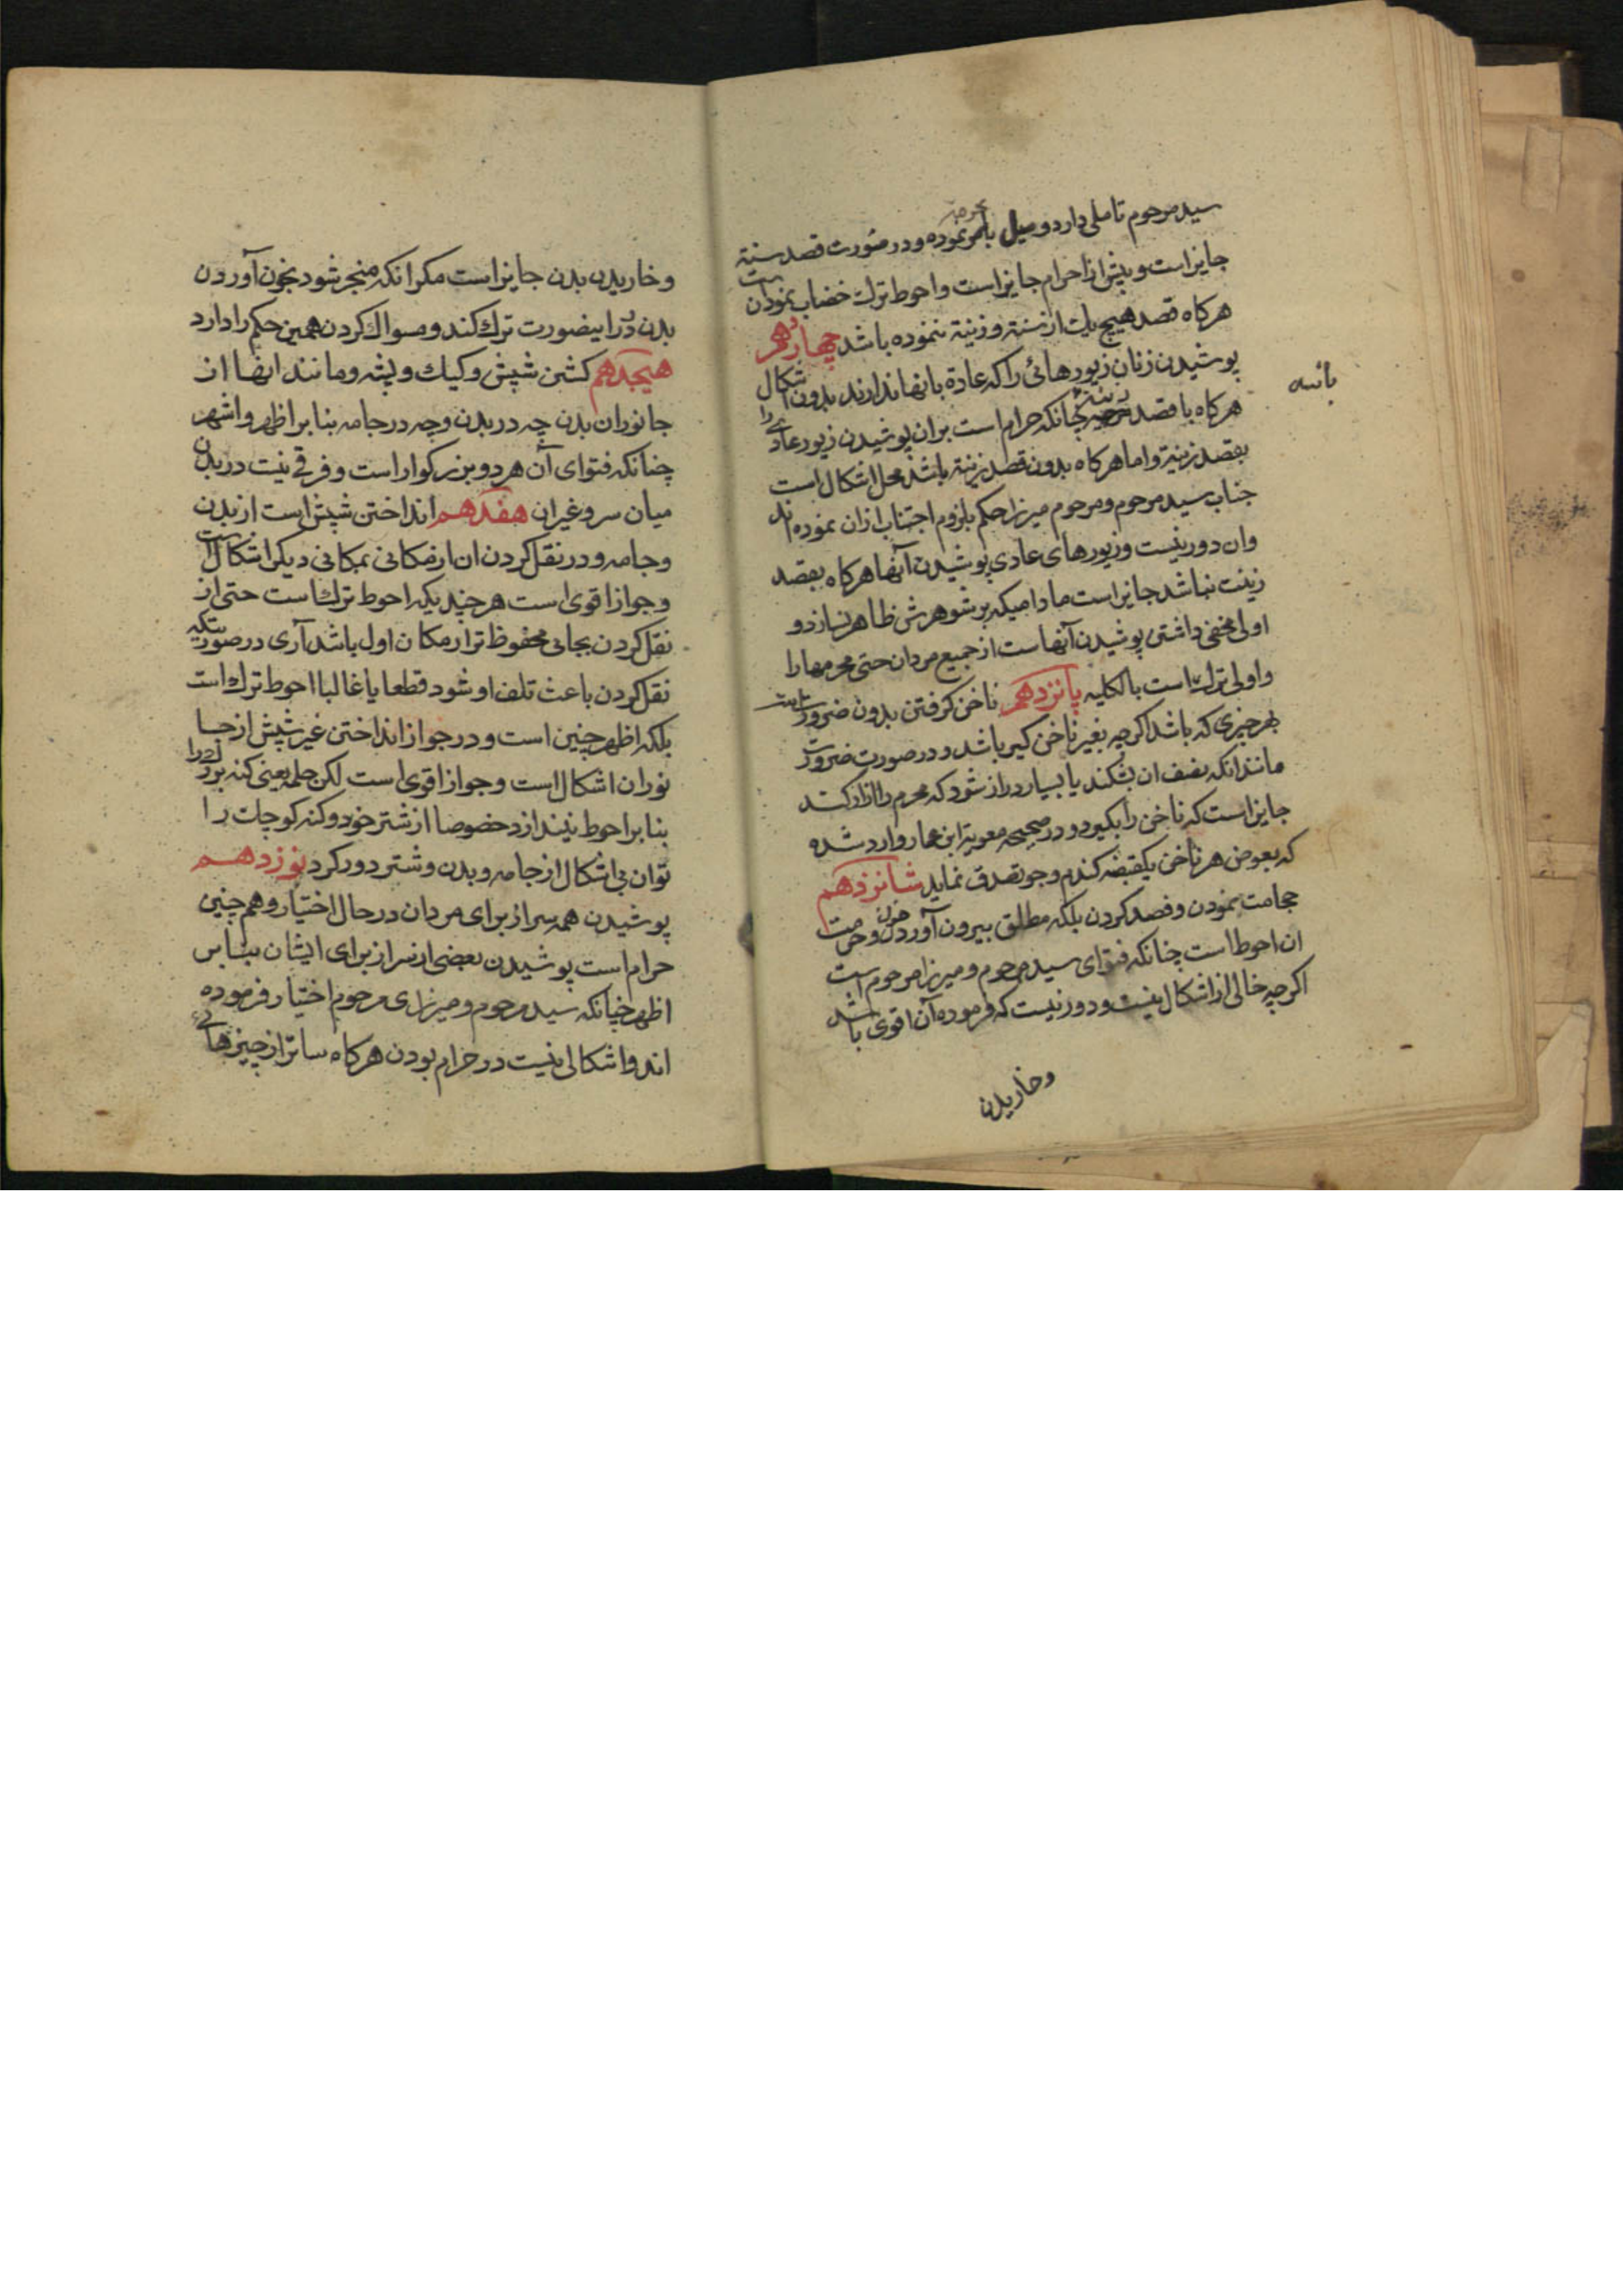 سید مرحوم تاملی دارد و میل بحرمة نموده و در صورت قصد سنة
جایز است و پیش از احرام جایز است و احوط ترک خضاب نمودن است
هرکاه قصد هیچ یک از سنة و زینة ننموده باشد چهاردهم
پوشیدن زنان زیورهائی را که عادة بانها ندارند بدون اشکال
هرکاه با قصد زینة چنانکه حرام است بران پوشیدن زیور عادی را
بقصد زینة و اما هرکاه بدون قصد زینة باشد محل اشکال است
جناب سید مرحوم و مرحوم میرزا حکم بلزوم اجتناب ازان نموده اند
وان دور نیست و زیورهای عادی پوشیدن آنها هرکاه بقصد
زینت نباشد جایز است مادامیکه بر شوهرش ظاهر نسازد و
اولی مخفی داشتن پوشیدن آنهاست از جمیع مردان حتی محرمها را
و اولی ترک است بالکلیه پانزدهم ناخن کرفتن بدون ضرورت است
بهر چیزی که باشد اکرچه بغیر ناخن کیر باشد و در صورت ضرورت
مانند انکه نصف ان بشکند یا بسیار دراز شود که محرم را ازار کند
جایز است که ناخن را بگیرد و در صحیحه معویة ابن عمار وارد شده
که بعوض هر ناخن یکقبضه کندم و جو تصدق نماید شانزدهم
حجامت نمودن و فصد کردن بلکه مطلق بیرون آوردن خون و حرمت
ان احوط است چنانکه فتوای سید مرحوم و میرزا مرحوم است
اکرچه خالی از اشکال نیست و دور نیست که فرموده آن اقوی باشد
و خاریدن
و خاریدن بدن جایز است مکر انکه منجر شود بخون آوردن
بدن در اینصورت ترک کند و مسواک کردن همین حکم را دارد
هیجدهم کشتن شپش و کیک و پشه و مانند انها از
جانوران بدن چه در بدن و چه در جامه بنا بر اظهر و اشهر
چنانکه فتوای آن هر دو بزرکوار است و فرقی نیست در بدن
میان سر و غیر ان هفدهم انداختن شپش است از بدن
و جامه و در نقل کردن ان از مکانی بمکانی دیکر اشکال است
و جواز اقوی است هر چند یکه احوط ترک است حتی از
نقل کردن بجائی محفوظ تر از مکان اول باشد آری در صورتیکه
نقل کردن باعث تلف او شود قطعا یا غالبا احوط ترک است
بلکه اظهر چنین است و در جواز انداختن غیر شپش از جا
نوران اشکال است و جواز اقوی است لکن حلمه یعنی کنه بزرک را
بنا بر احوط نیندازد خصوصا از شتر خود و کنه کوچک را
توان بی اشکال از جامه و بدن و شتر دور کرد نوزدهم
پوشیدن همه سر از برای مردان در حال اختیار و هم چنین
حرام است پوشیدن بعضی از سر از برای ایشان بنا بر
اظهر چنانکه سید مرحوم و میرزای مرحوم اختیار فرموده
اند و اشکالی نیست در حرام بودن هرکاه ساتر از چیزهائی